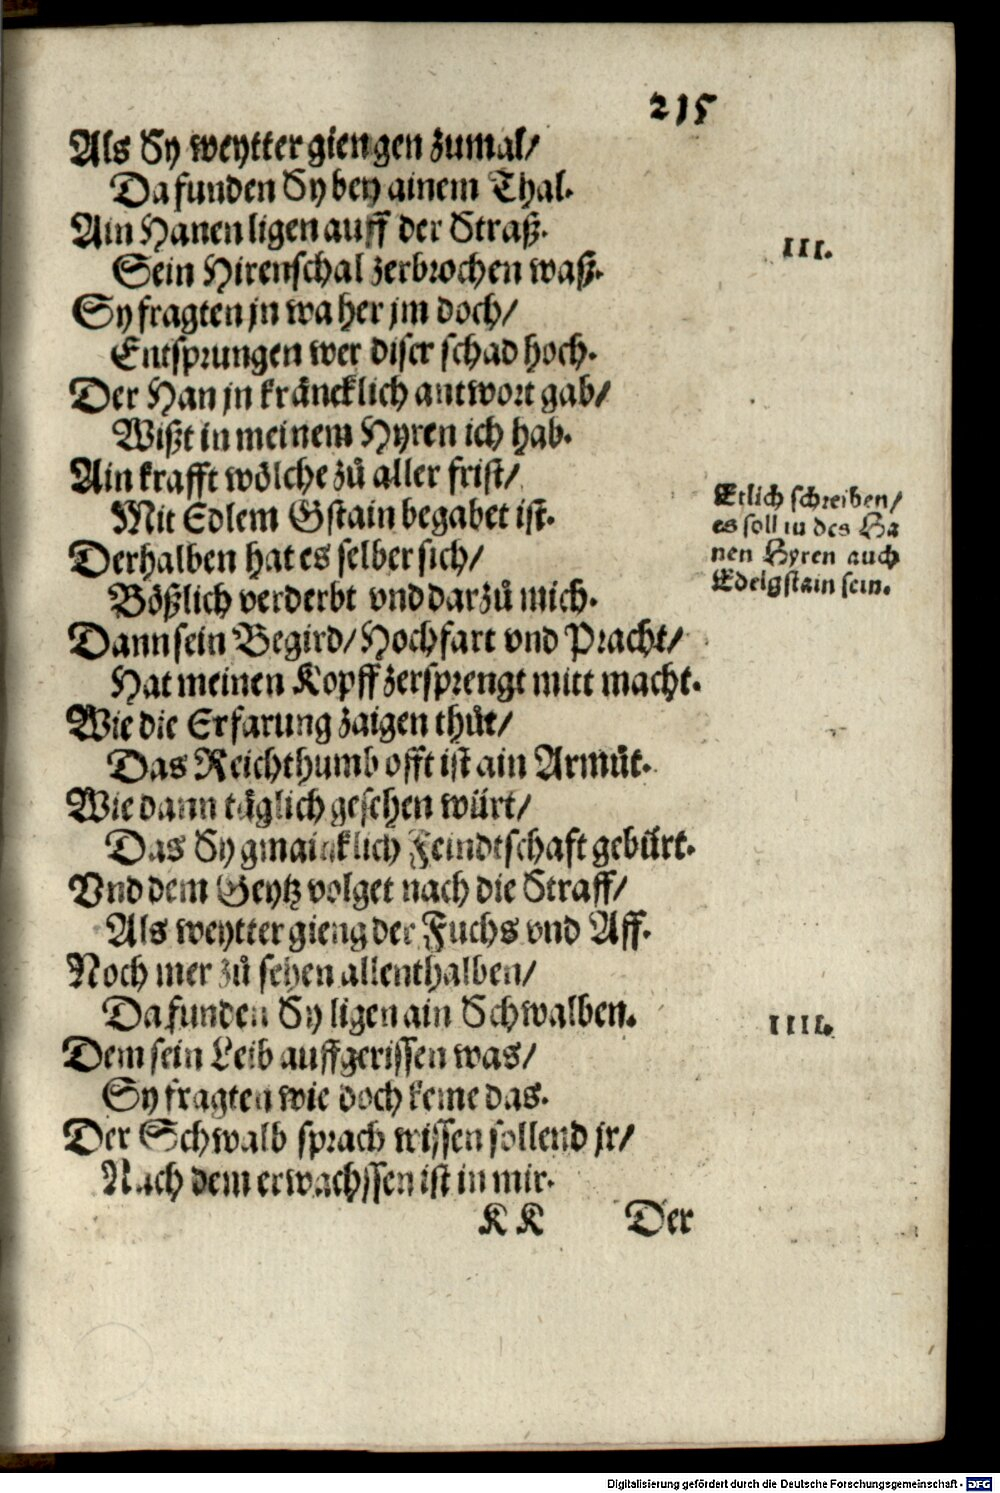 215
Als Sy weytter giengen zumal/
Da funden Sy bey ainem Thal.
Ain Hanen ligen auff der Straß.
III.
Sein Hirenschal zerbrochen waß.
Sy fragten jn wa her jm doch/
Entsprungen wer diser schad hoch.
Der Han jn kräncklich antwort gab/
Wißt in meinem Hyren ich hab.
Ain krafft wölche zů aller frist/
Mit Edlem Gstain begabet ist.
Etlich schreiben/
es soll in des Ha
nen Hyren auch
Edelgstain sein.
Derhalben hat es selber sich/
Bößlich verderbt vnd darzů mich.
Dann sein Begird/ Hochfart vnd Pracht/
Hat meinen Kopff zersprengt mitt macht.
Wie die Erfarung zaigen thůt/
Das Reichthumb offt ist ain Armůt.
Wie dann täglich gesehen würt/
Das Sy gmaincklich Feindtschaft gebürt.
Vnd dem Geytz volget nach die Straff/
Als weytter gieng der Fuchs vnd Aff.
Noch mer zů sehen allenthalben/
Da funden Sy ligen ain Schwalben.
IIII.
Dem sein Leib auffgerissen was/
Sy fragten wie doch keme das.
Der Schwalb sprach wissen sollend jr/
Nach dem erwachssen ist in mir.
KK Der
Digitalisierung gefördert durch die Deutsche Forschungsgemeinschaft - DFG